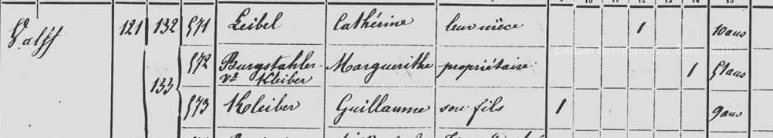 Valff 121 132 571 Leibel Cathérine leur nièce 1 10 ans
133 572 Burgstahler Marguerithe propriétaire 1 51 ans
Vᵉ Kleiber
573 Kleiber Guillaume son fils 1 9 ans